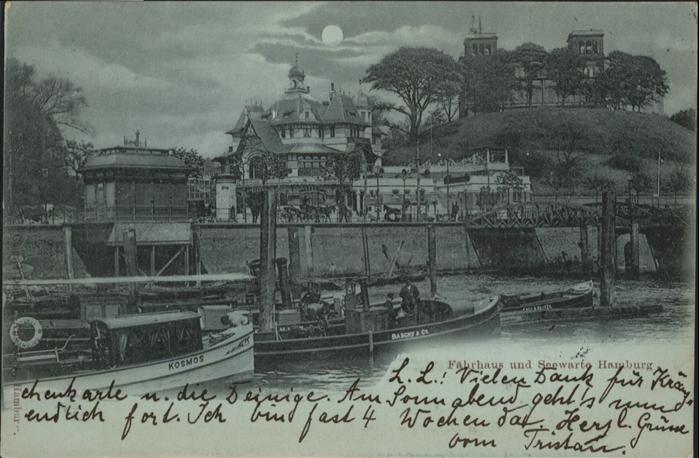 Fährhaus und Seewarte Hamburg
KOSMOS
BASCHY & Co.
L. L.! Vielen Dank für Krä-
chenkarte u. die Deinige. Am Sonnabend geht's nun
endlich fort. Ich bin fast 4 Wochen da. Herzl. Grüße
vom Tristan.